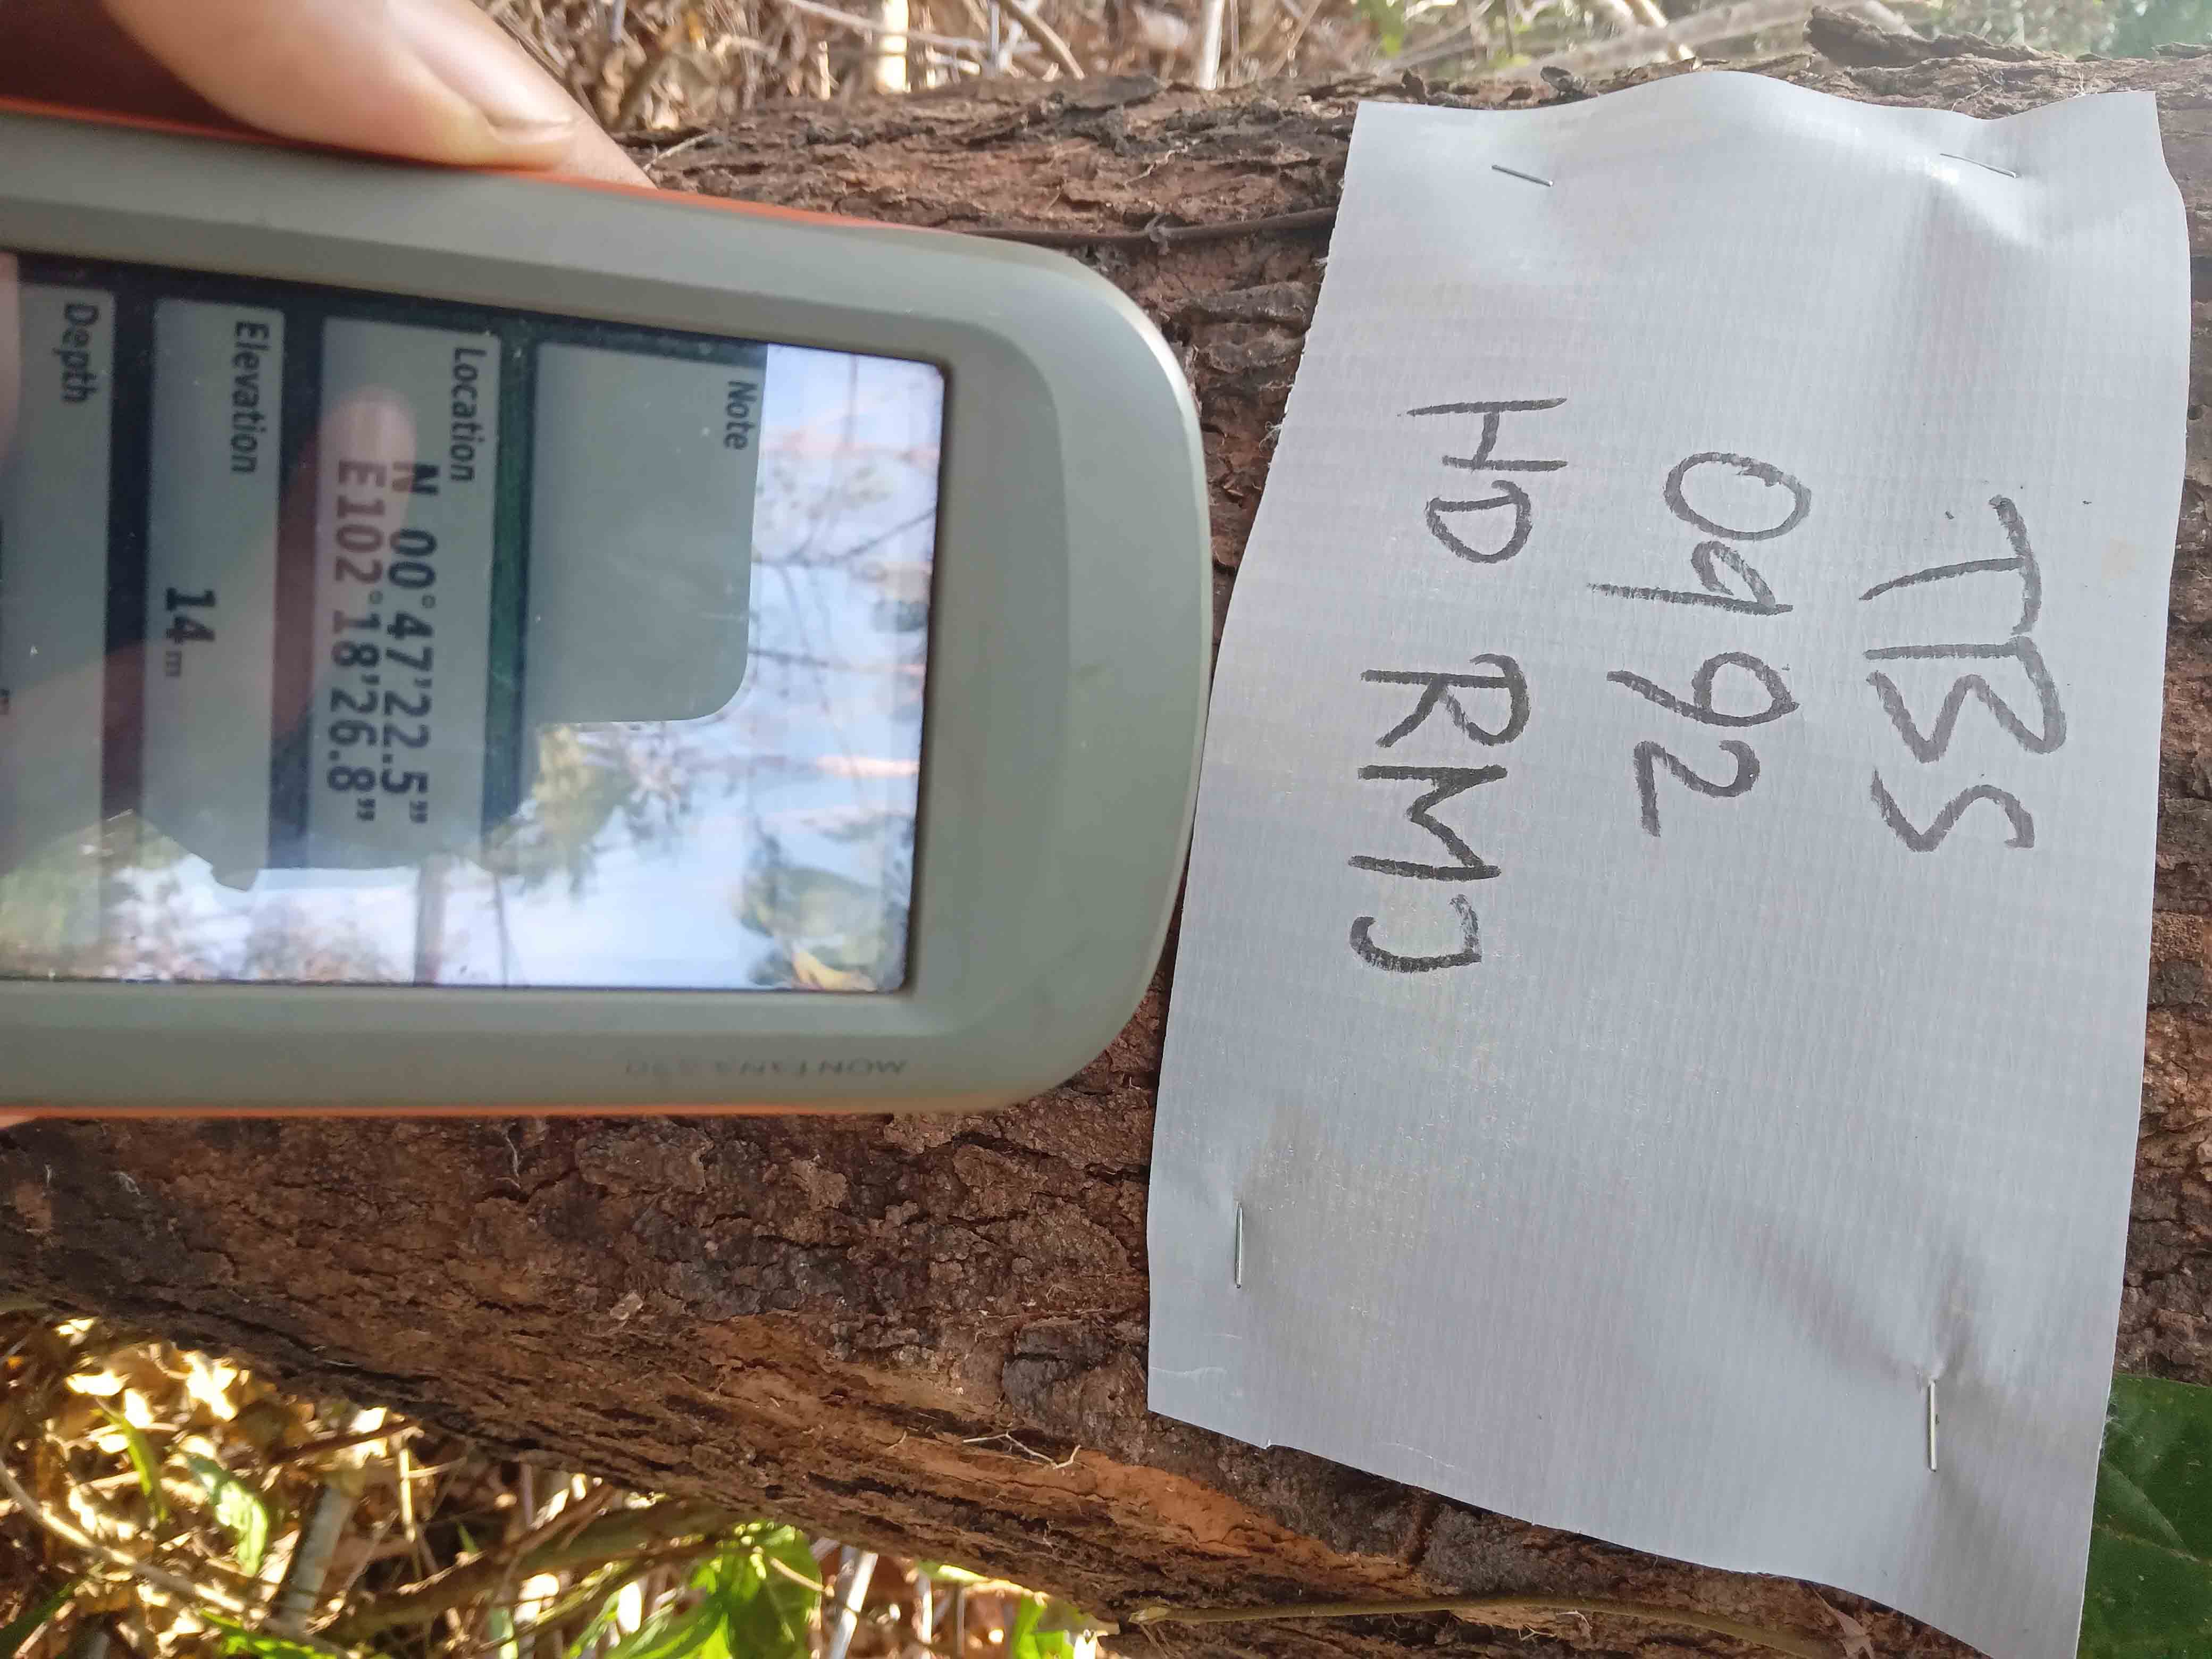 TBS
0992
HD RMJ
Note
Location
N 00°47'22.5"
E102°18'26.8"
Elevation
14m
Depth